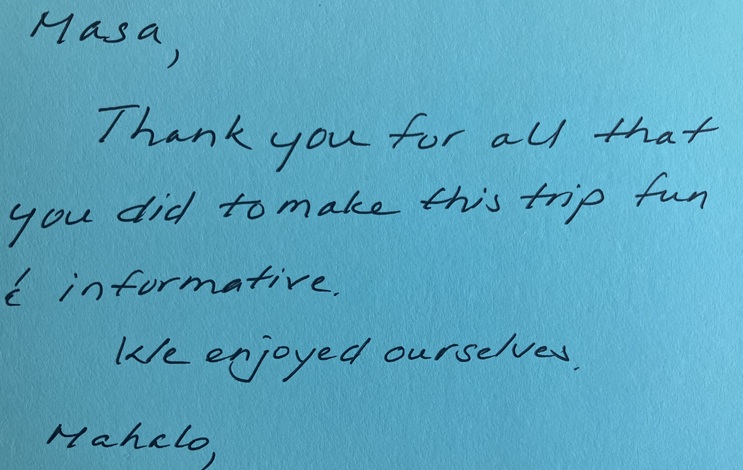 Masa,
Thank you for all that
you did to make this trip fun
& informative.
We enjoyed ourselves.
Mahalo,